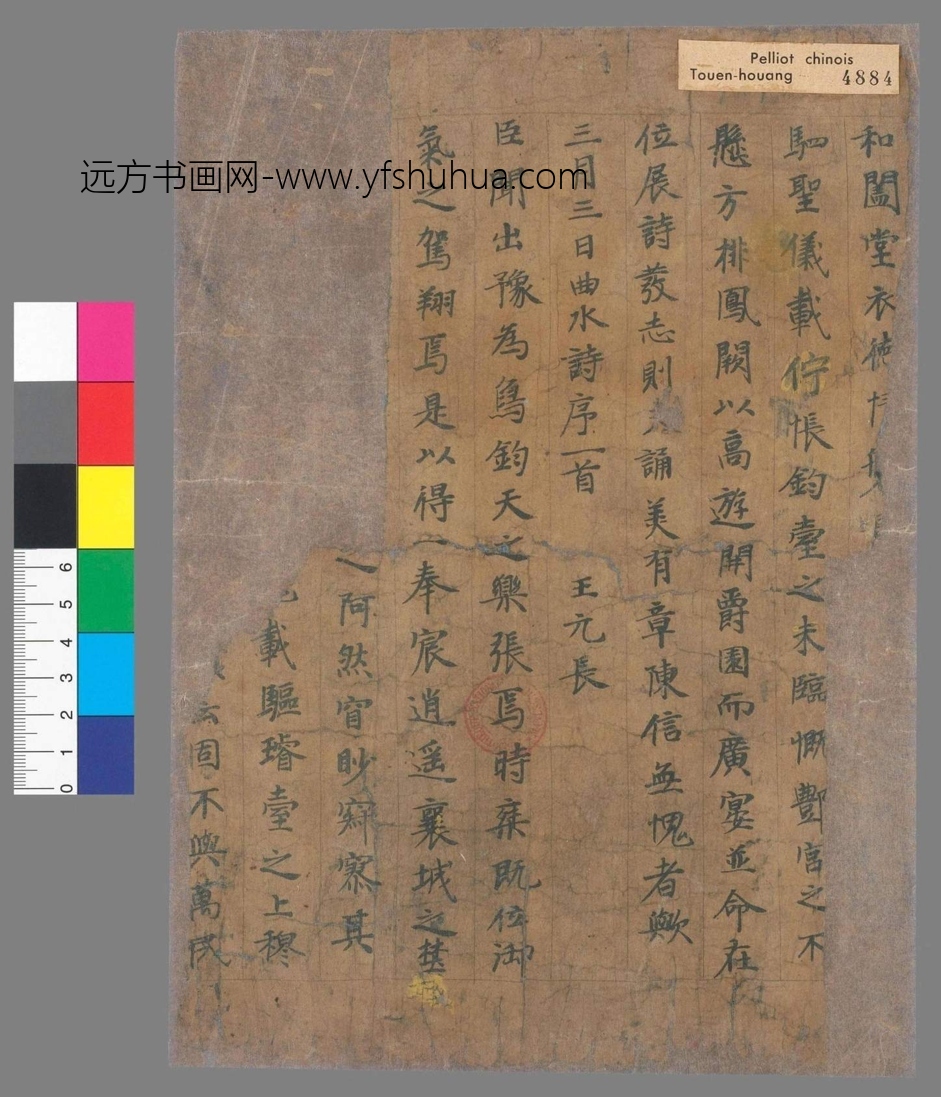 Pelliot chinois
Touen-houang 4884
远方书画网-www.yfshuhua.com
和闔堂衣德
駟聖儀載佇悵鈞臺之未臨慨酆宮之不
懸方排鳳闕以高遊開爵園而廣宴並命在
位展詩發志則誦美有章陳信無愧者歟
三月三日曲水詩序一首 王元長
臣聞出豫為鳥鈞天之樂張焉時乘既位御
氣之駕翔焉是以得一奉宸逍遥襄城之
之阿然窅眇寂寥其
載驅璿臺之上穆
云固不與萬民
0 1 2 3 4 5 6